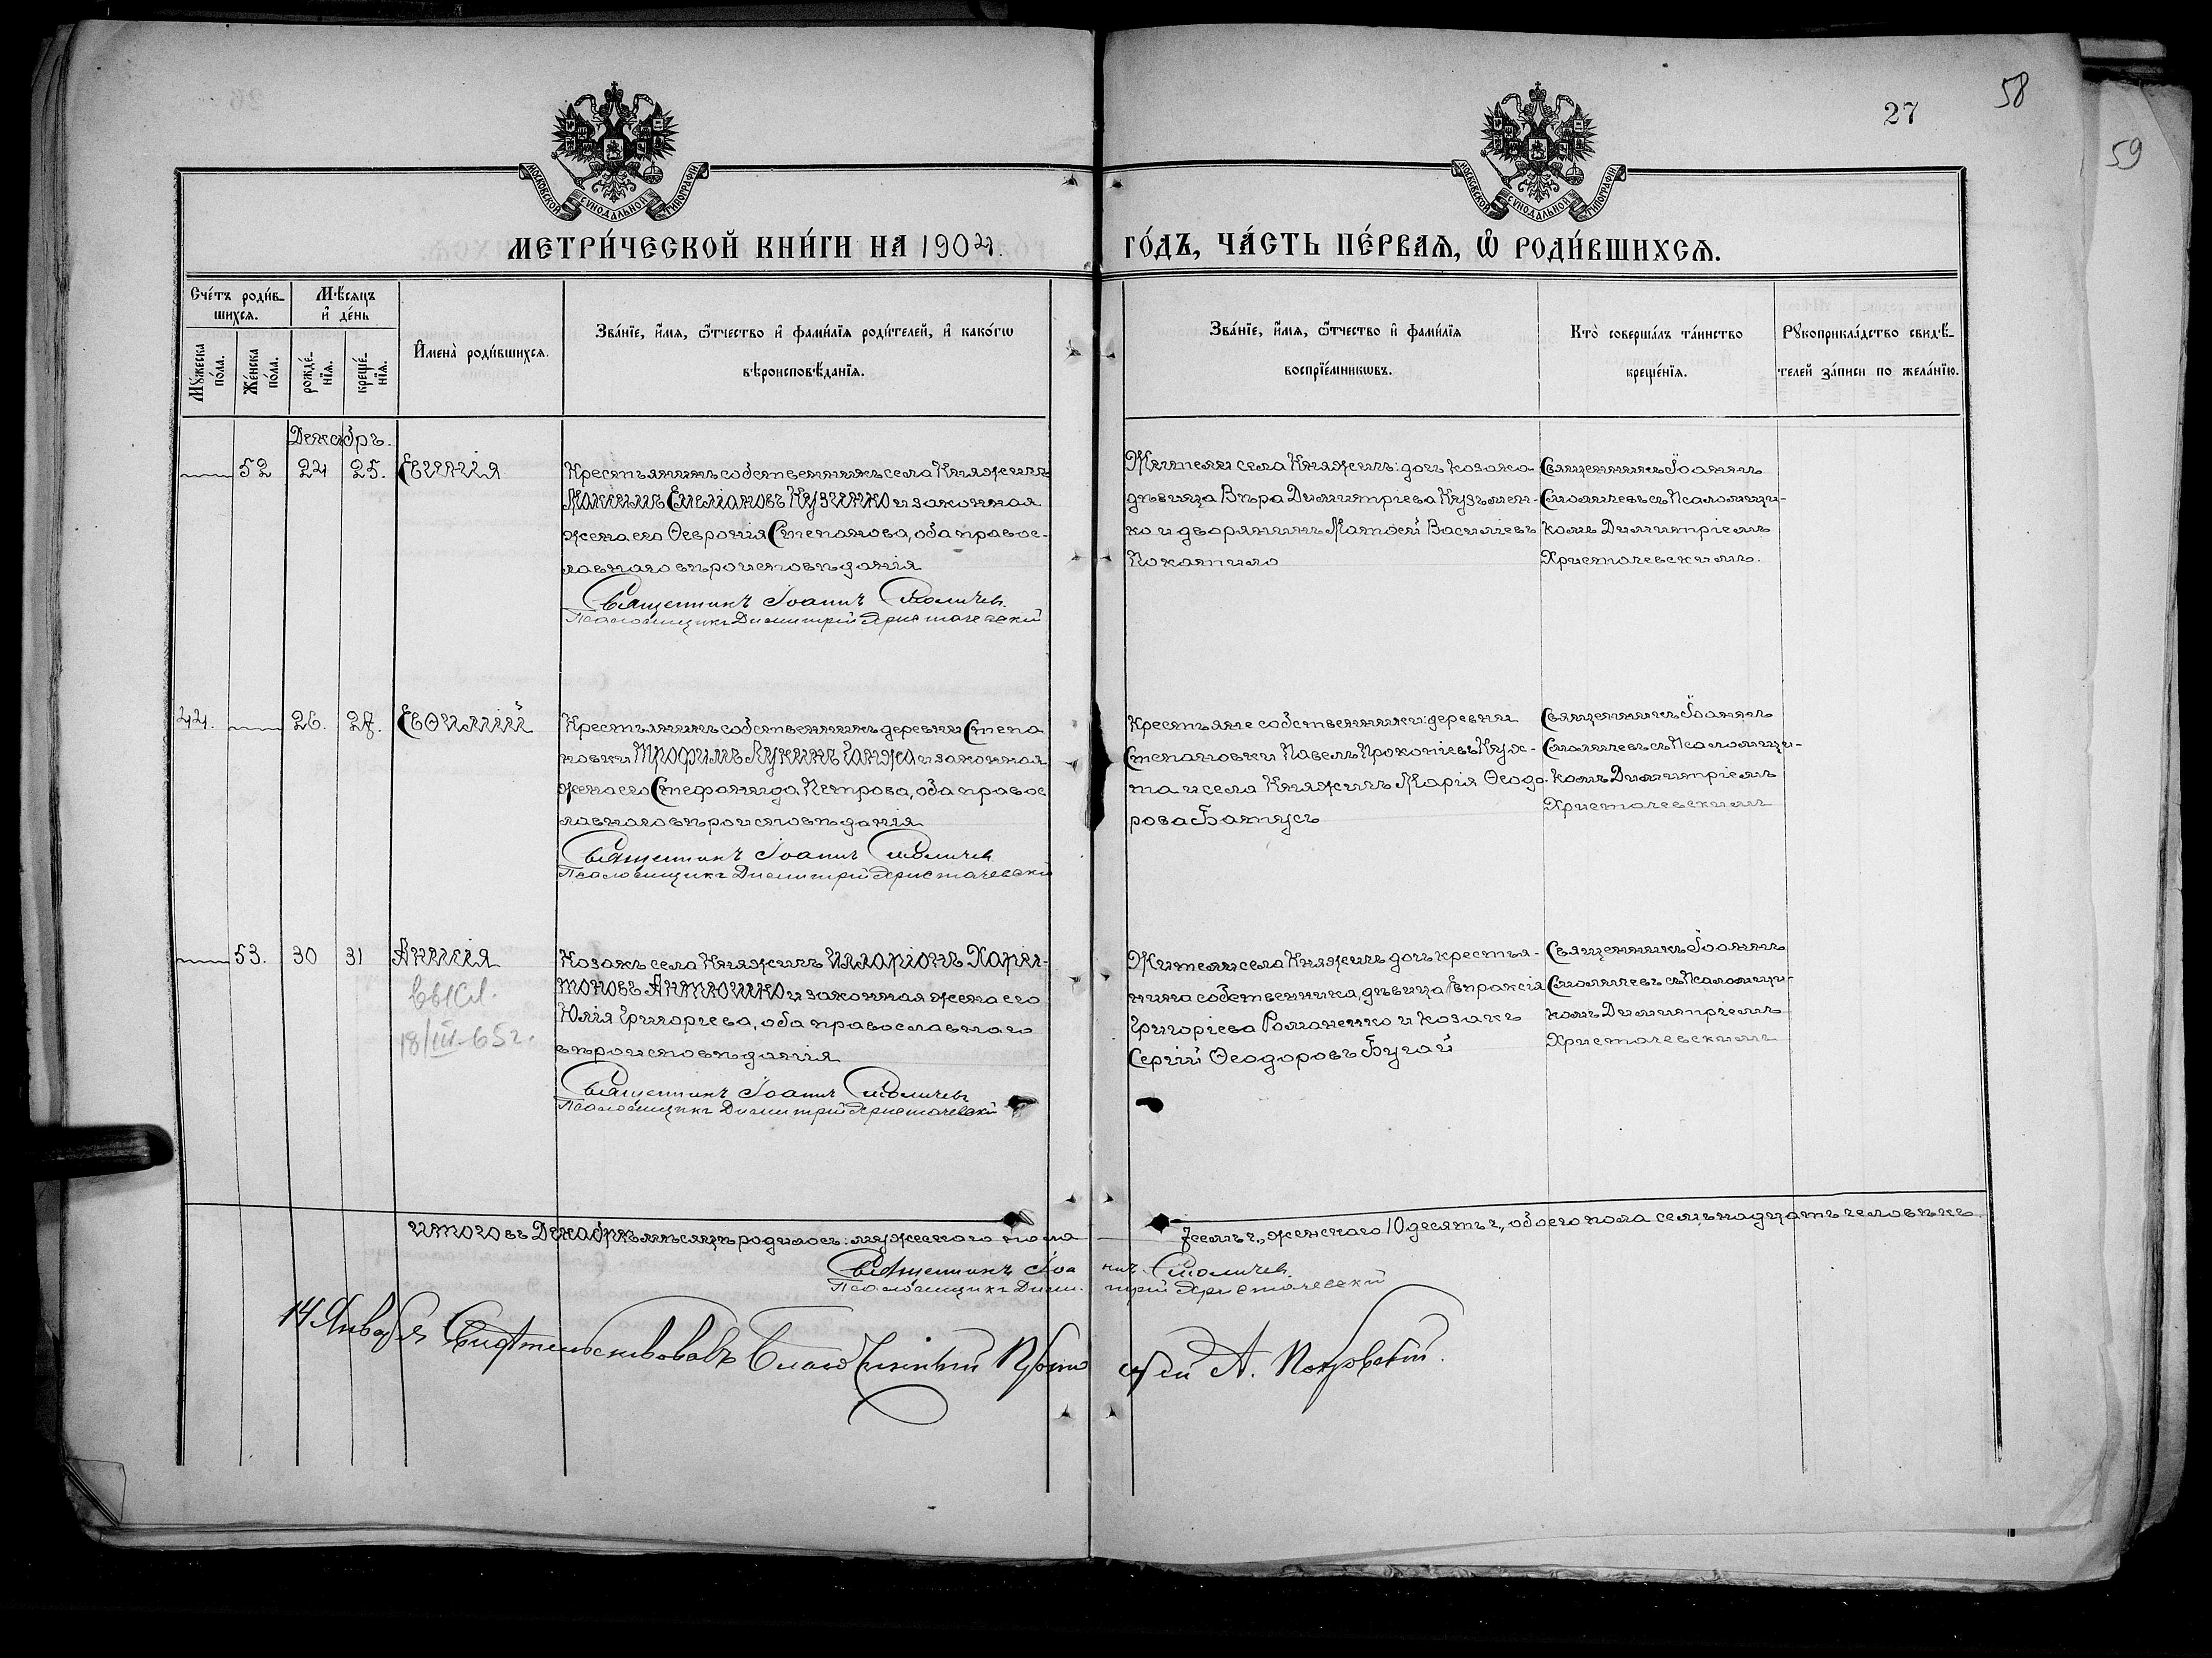 58
27
59
МОСКОВСКОЙ СѴНОДАЛЬНОЙ ТИПОГРАФІИ
МОСКОВСКОЙ СѴНОДАЛЬНОЙ ТИПОГРАФІИ
МЕТРИ́ЧЕСКОЙ КНИ́ГИ НА 1904.
ГО́ДЪ, ЧА́СТЬ ПЕ́РВАѦ, Ѡ҆ РОДИ́ВШИХСѦ.
Сче́тъ роди́в-
шихсѧ.
Мꙋ́жеска
по́ла.
Же́нска
по́ла.
Мѣ́сяцъ
и҆ де́нь
рожде́-
нїѧ.
креще́-
нїѧ.
И҆мена̀ роди́вшихсѧ.
Зва́нїе, и҆́мѧ, ѻ҆́тчество и҆ фами́лїѧ роди́телей, и҆ како́гѡ
вѣроисповѣ́данїѧ.
Зва́нїе, и҆́мѧ, ѻ҆́тчество и҆ фами́лїѧ
воспрїе́мникѡвъ.
Кто̀ соверша́лъ та́инство
креще́нїѧ.
Рꙋкоприкла́дство свидѣ́-
телей за́писи по жела́нїю.
Декабрь.
52
24
25.
Евгенія
Крестьянинъ собственникъ села Княжичъ
Максимъ Емеліановъ Кузменко и законная
жена его Ѳевронія Степанова, оба правос-
лавнаго вѣроисповѣданія
Священникъ Іоаннъ Смоличев
Псаломщикъ Димитрій Христачевскій
Жители села Княжичъ: дочь козака
дѣвица Вѣра Димитріева Кузьмен-
ко и дворянинъ Матѳей Василіевъ
Покатило
Священникъ Іоаннъ
Смоличевъ съ Псаломщи-
комъ Димитріемъ
Христачевскимъ.
44.
26.
27.
Евѳимій
Крестьянинъ собственникъ деревни Степа
новки Трофимъ Лукинъ Ганжа и законная
жена его Стефанида Петрова, оба правос
лавнаго вѣроисповѣданія
Священникъ Іоаннъ Смоличев
Псаломщикъ Димитрій Христачевскій
Крестьяне собственники: деревни
Степановки Павелъ Прокопіевъ Кух-
та и села Княжичъ Марія Ѳеодо-
рова Батусъ
Священникъ Іоаннъ
Смоличевъ съ Псаломщи-
комъ Димитріемъ
Христачевскимъ
53.
30
31
Анисія
выс.
18/III-65г.
Козакъ села Княжичъ Илларіонъ Хари-
тоновъ Антюшко и законная жена его
Юлія Григоріева, оба православнаго
вѣроисповѣданія
Священникъ Іоаннъ Смоличевъ
Псаломщикъ Димитрій Христачевскій
Жители села Княжичъ дочь крестья-
нина собственника, дѣвица Евпраксія
Григоріева Романенко и козакъ
Сергій Ѳеодоровъ Бугай
Священникъ Іоаннъ
Смоличевъ съ Псаломщи-
комъ Димитріемъ
Христачевскимъ
Итого въ Декабрѣ мѣсяцѣ родилось: мужескаго пола 7 семь ч., женскаго 10 десять ч., обоего пола семьнадцать человѣкъ.
Священникъ Іоаннъ Смоличев
Псаломщикъ Димитрій Христачевскій
14 Января Свидѣтельствовалъ Благочинный Протоіерей А. Покровскій.